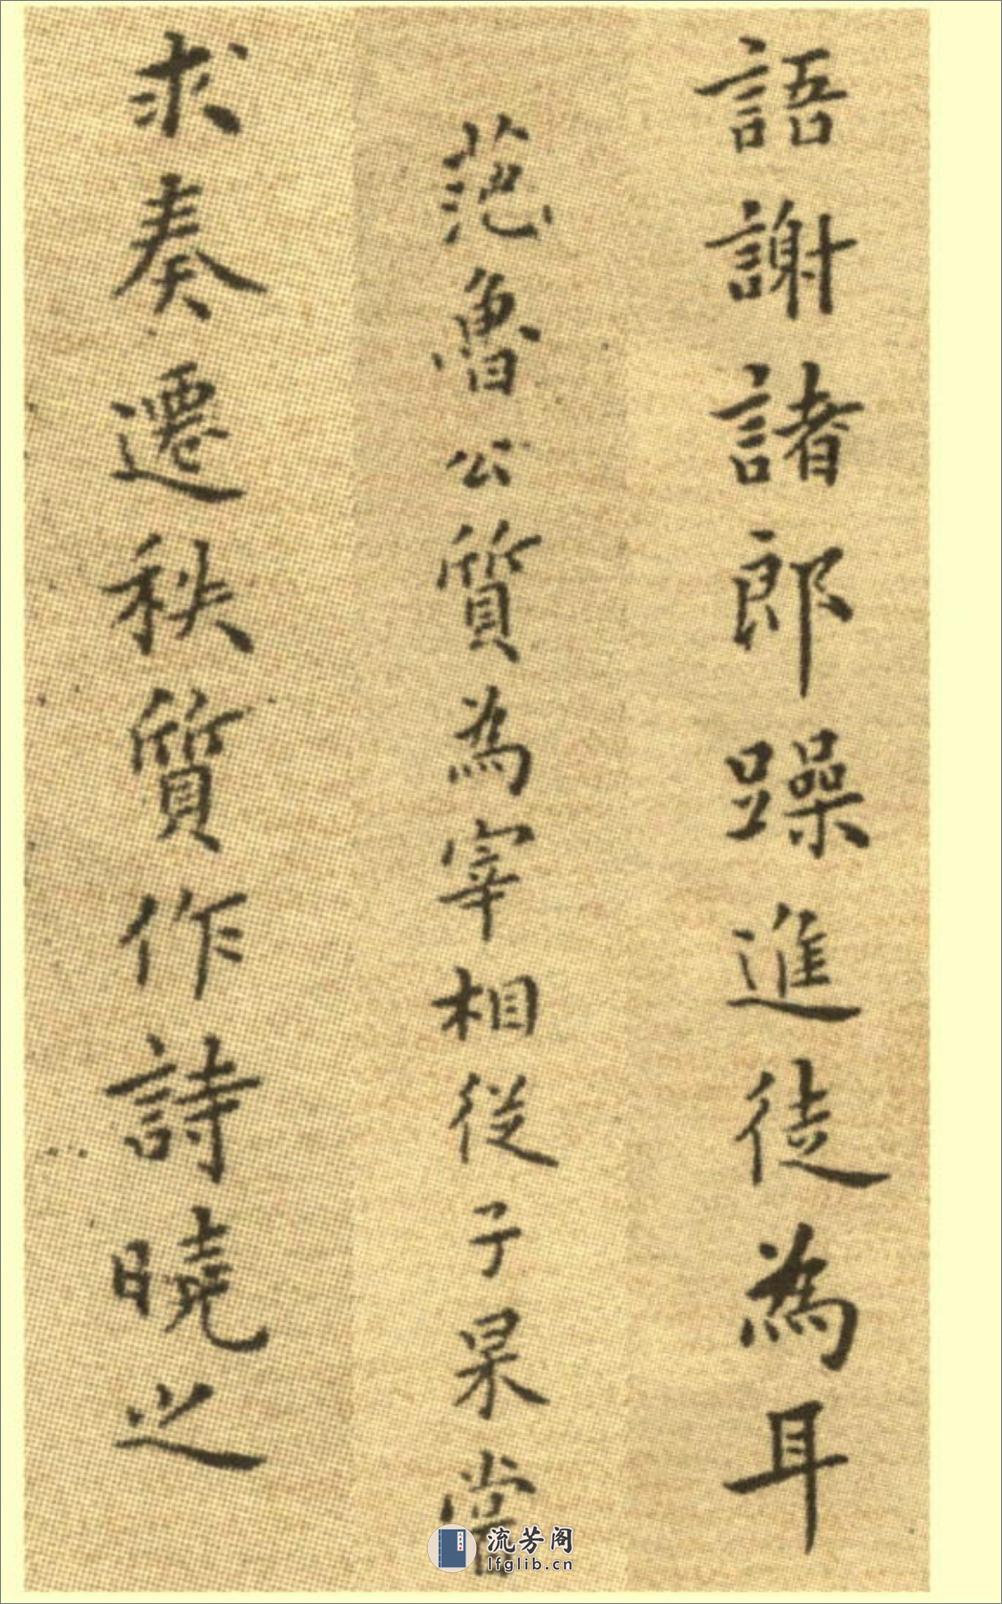 語謝諸郎躁進徒為耳
范魯公質為宰相從子杲嘗
求奏遷秩質作詩曉之
流芳阁
lfglib.cn